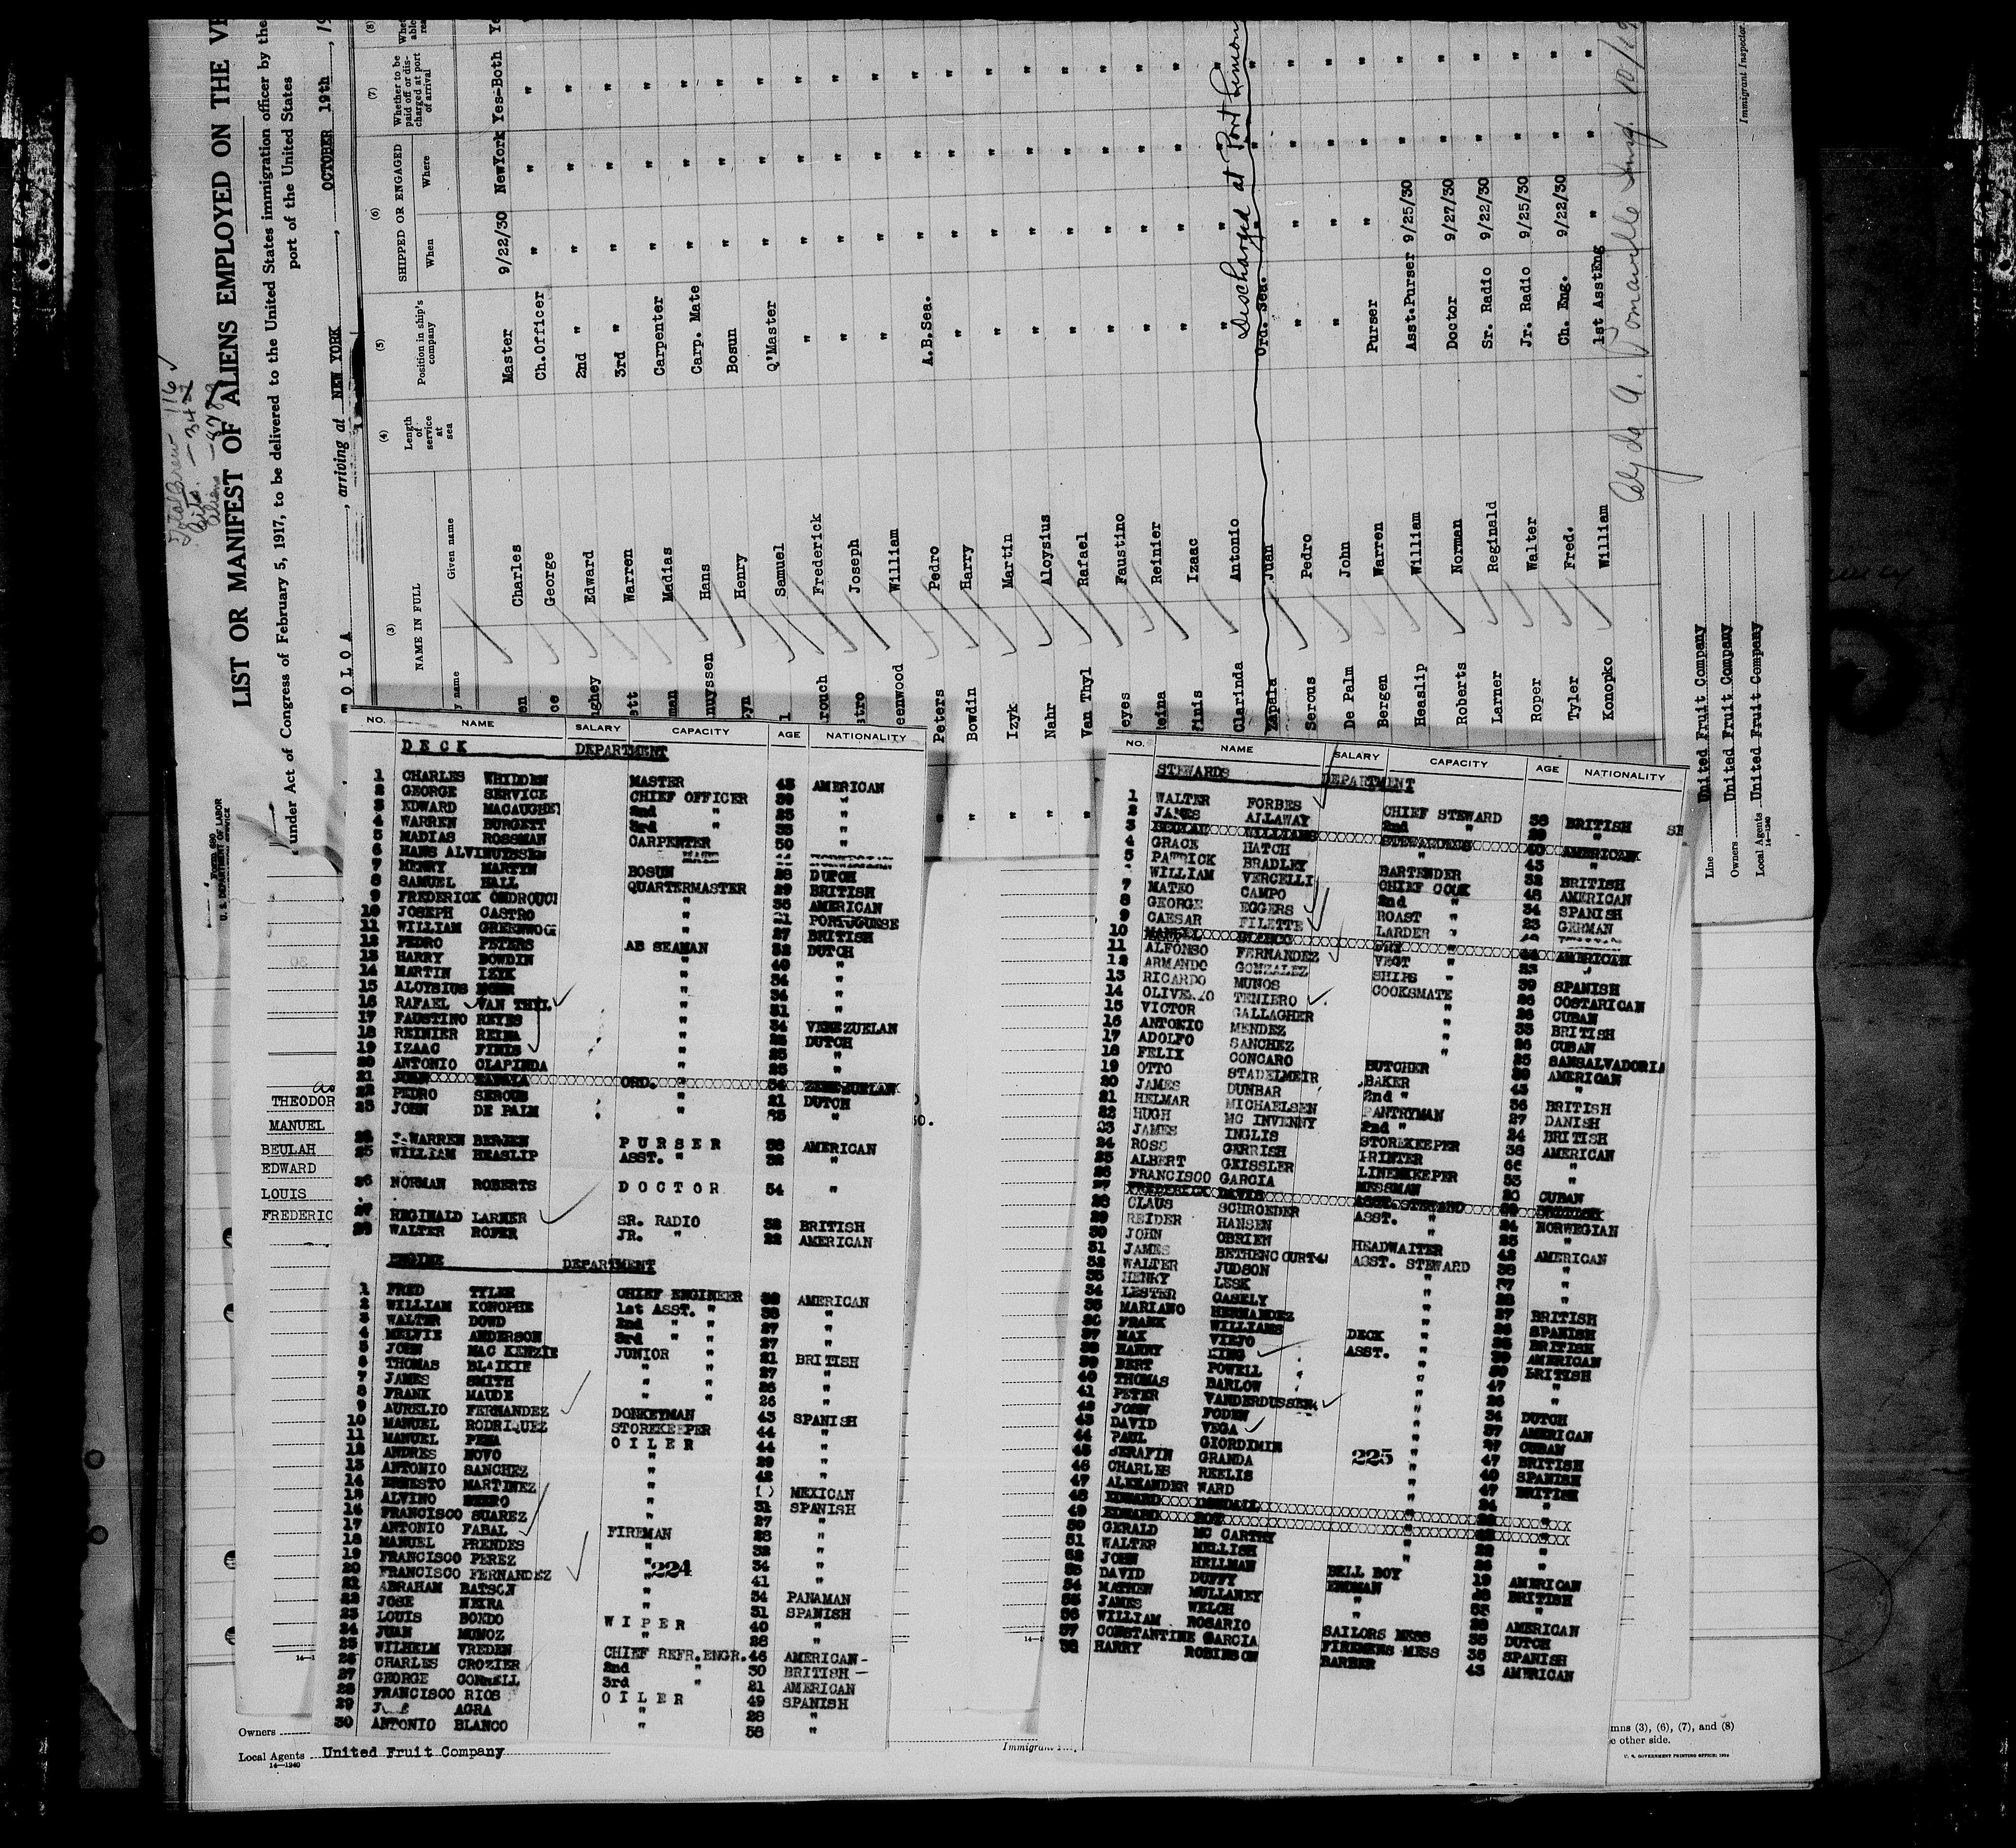 Total Crew - 116
Cits. - 34
Aliens
LIST OR MANIFEST OF ALIENS EMPLOYED ON THE VE
under Act of Congress of February 5, 1917, to be delivered to the United States immigration officer by the
port of the United States
TOLOA, arriving at NEW YORK, OCTOBER 19th, 19
FORM 680
U. S. DEPARTMENT OF LABOR
(3) (4) (5) (6) (7) (8)
NAME IN FULL
Given name
Length of service at sea
Position in ship's company
SHIPPED OR ENGAGED
When Where
Whether to be paid off or discharged at port of arrival
Charles Master 9/22/30 NewYork Yes-Both Ye
George Ch.Officer " " "
ughey Edward 2nd " " " "
ett Warren 3rd " " " "
man Madias Carpenter " " "
nuyssen Hans Carp. Mate " " "
Henry Bosun " " "
Samuel Q'Master " " "
rouch Frederick " " " "
stro Joseph " " " "
eenwood William " " " "
Peters Pedro A.B.Sea. " " "
Bowdin Harry " " " "
Izyk Martin " " " "
Nahr Aloysius " " " "
Van Thyl Rafael " " " "
eyes Faustino " " " "
eina Reinier " " " "
Finis Izaac " " " "
Clarinda Antonio " " " "
Zapala Juan Ord. Sea. " " "
Discharged at Port Limon
Serous Pedro " " " "
De Palm John " " " "
Bergen Warren Purser " " "
Heaslip William Asst.Purser 9/25/30 " "
Roberts Norman Doctor 9/27/30 " "
Larner Reginald Sr. Radio 9/22/30 " "
Roper Walter Jr. Radio 9/25/30 " "
Tyler Fred. Ch. Eng. 9/22/30 " "
Konopko William 1st AsstEng " " "
10/19
Immigrant Inspector.
Line United Fruit Company
Owners United Fruit Company
Local Agents United Fruit Company
14—1240
NO. NAME SALARY CAPACITY AGE NATIONALITY
DECK DEPARTMENT
1 CHARLES WHIDDEN MASTER 43 AMERICAN
2 GEORGE SERVICE CHIEF OFFICER 39 "
3 EDWARD MACAUGHEY 2nd " 25 "
4 WARREN BURGETT 3rd " 35 "
5 MADIAS ROSSMAN CARPENTER 50 "
6 HANS ALVINUYSSEN MATE NORWEGIAN
7 HENRY MARTYN BOSUN 28 DUTCH
8 SAMUEL HALL QUARTERMASTER 29 BRITISH
9 FREDERICK ONDROUCH " 36 AMERICAN
10 JOSEPH CASTRO " 21 PORTUGUESE
11 WILLIAM GREENWOO " 27 BRITISH
12 PEDRO PETERS AB SEAMAN 32 DUTCH
13 HARRY BOWDIN " 40 "
14 MARTIN IZYK " 34 "
15 ALOYSIUS " 34 "
16 RAFAEL VAN THYL " 31 "
17 FAUSTINO REYES " 34 VENEZUELAN
18 REINIER REINA " 28 DUTCH
19 IZAAC FINIS " 25 "
20 ANTONIO CLAPINDA " 25 "
21 JUAN ZAPALA ORD. " VENEZUELAN
22 PEDRO SEROUS " 21 DUTCH
23 JOHN DE PALM " 35 "
24 J.WARREN BERGEN PURSER 38 AMERICAN
25 WILLIAM HEASLIP ASST. " 32 "
26 NORMAN ROBERTS DOCTOR 54 "
27 REGINALD LARNER SR. RADIO 32 BRITISH
28 WALTER ROPER JR. " 22 AMERICAN
ENGINE DEPARTMENT
1 FRED TYLER CHIEF ENGINEER 38 AMERICAN
2 WILLIAM KONOPHE 1st ASST. " 38 "
3 WALTER DOWD 2nd " " 27 "
4 MELVIE ANDERSON 3rd " " 27 "
5 JOHN MAC KENZIE JUNIOR " 21 BRITISH
6 THOMAS BLAIKIE " " 27 "
7 JAMES SMITH " " 26 "
8 FRANK MAUDE " " 26 "
9 AURELIO FERNANDEZ DONKEYMAN 43 SPANISH
10 MANUEL RODRIQUEZ STOREKEEPER 44 "
11 MANUEL PENA OILER 44 "
12 ANDRES NOVO " 29 "
13 ANTONIO SANCHEZ " 42 "
14 ERNESTO MARTINEZ " MEXICAN
15 ALVINO " 31 SPANISH
16 FRANCISCO SUAREZ " 27 "
17 ANTONIO FABAL FIREMAN 28 "
18 MANUEL PRENDES " 32 "
19 FRANCISCO PEREZ " 34 "
20 FRANCISCO FERNANDEZ " 41 "
224
21 ABRAHAM BATSON " 34 PANAMAN
22 JOSE NEIRA " 31 SPANISH
23 LOUIS BONDO WIPER 40 "
24 JUAN MUNOZ " 28 "
25 WILHELM VREDEN CHIEF REFR.ENGR. 46 AMERICAN-
26 CHARLES CROZIER 2nd " 30 BRITISH—
27 GEORGE CONNELL 3rd " 21 AMERICAN
28 FRANCISCO RIOS OILER 49 SPANISH
29 AGRA " 28 "
30 ANTONIO BLANCO " 38 "
NO. NAME SALARY CAPACITY AGE NATIONALITY
STEWARDS DEPARTMENT
1 WALTER FORBES CHIEF STEWARD 38 BRITISH
2 JAMES ALLAWAY 2nd " 29 "
3 BEULAH WILLIAMS STEWARDESS 40 AMERICAN
4 GRACE HATCH " 43 "
5 PATRICK BRADLEY BARTENDER 32 BRITISH
WILLIAM VERCELLI CHIEF COOK 48 AMERICAN
7 MATEO CAMPO 2nd " 34 SPANISH
8 GEORGE EGGERS ROAST " 23 GERMAN
9 CAESAR FILETTE LARDER "
10 MANUEL FRY " AMERICAN
11 ALFONSO FERNANDEZ VEGT " 33 "
12 ARMANDO GONZALEZ SHIPS " 39 SPANISH
13 RICARDO MUNOS COOKSMATE 26 COSTARICAN
14 TENIERO " 26 CUBAN
15 VICTOR GALLAGHER " 33 BRITISH
16 ANTONIO MENDEZ " 26 CUBAN
17 ADOLFO SANCHEZ " 25 SANSALVADORIA
18 FELIX CONCARO BUTCHER 39 AMERICAN
19 OTTO STADELMEIR BAKER 43 "
20 JAMES DUNBAR 2nd " 36 BRITISH
21 HELMAR MICHAELSEN PANTRYMAN 27 DANISH
22 HUGH MC INVENNY 2nd " 24 BRITISH
23 JAMES INGLIS STOREKEEPER 38 AMERICAN
24 ROSS GERRISH PRINTER 66 "
25 ALBERT GEISSLER LINENKEEPER 53 "
26 FRANCISCO GARCIA MESSMAN 20 CUBAN
27 FREDERICK DAVIS ASST. STEWARD BRITISH
28 CLAUS SCHROEDER ASST. " 24 NORWEGIAN
29 REIDER HANSEN " 25 "
30 JOHN OBRIEN HEADWAITER 42 AMERICAN
31 JAMES BETHENCOURT ASST. STEWARD 38 "
32 WALTER JUDSON " "
33 HENRY LESK " 28 "
34 LESTER CASELY " 27 BRITISH
35 MARIANO HERNANDEZ " 26 SPANISH
36 FRANK WILLIAMS DECK " BRITISH
37 MAX VIEJO ASST. " AMERICAN
38 HARRY KING " BRITISH
39 BERT POWELL " 47 "
40 THOMAS BARLOW " 26 "
41 PETER VANDERDUSSEN " 34 DUTCH
42 JOHN FODEN " 37 AMERICAN
43 DAVID VEGA " 27 CUBAN
44 PAUL GIORDIMIN " 47 BRITISH
225
45 SERAFIN GRANDA " 40 SPANISH
46 CHARLES REELIS " 47 BRITISH
47 ALEXANDER WARD " 24 "
48 EDWARD
49 EDWARD ROY
50 GERALD MC CARTHY " 22 "
51 WALTER MELLISH " 26 "
52 JOHN HELLMAN BELL BOY 19 AMERICAN
53 DAVID DUFFY 28 BRITISH
54 MATHEW MULLANEY " "
55 JAMES WELCH " AMERICAN
56 WILLIAM ROSARIO SAILORS MESS 38 DUTCH
57 CONSTANTINE GARCIA FIREMENS MESS 38 SPANISH
58 HARRY ROBINSON BARBER 43 AMERICAN
THEODOR
MANUEL
BEULAH
EDWARD
LOUIS
FREDERIC
Owners
Local Agents United Fruit Company
14—1240
mns (3), (6), (7), and (8)
e other side.
U. S. GOVERNMENT PRINTING OFFICE: 1929